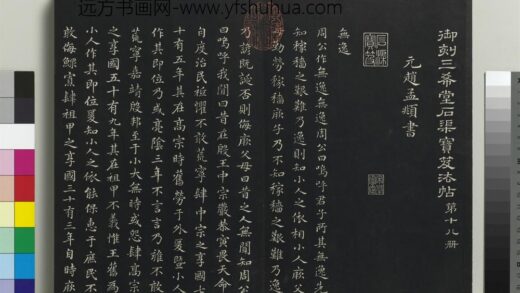 远方书画网- www.yfshuhua.com
御刻三希堂石渠寶笈法帖 第十八册
元趙孟頫書
石渠寶笈
無逸
周公作無逸無逸周公曰嗚呼君子所其無逸先
知稼穡之艱難乃逸則知小人之依相小人厥父
母勤勞稼穡厥子乃不知稼穡之艱難乃逸
乃諺既誕否則侮厥父母曰昔之人無聞知周公
曰嗚呼我聞曰昔在殷王中宗嚴恭寅畏天命
自度治民祗懼不敢荒寧肆中宗之享國七
十有五年其在高宗時舊勞于外爰暨小人
作其即位乃或亮陰三年不言言乃雍不敢
荒寧嘉靖殷邦至于小大無時或怨肆高宗
之享國五十有九年其在祖甲不義惟王舊為
小人作其即位爰知小人之依能保惠于庶民不
敢侮鰥寡肆祖甲之享國三十有三年自時厥